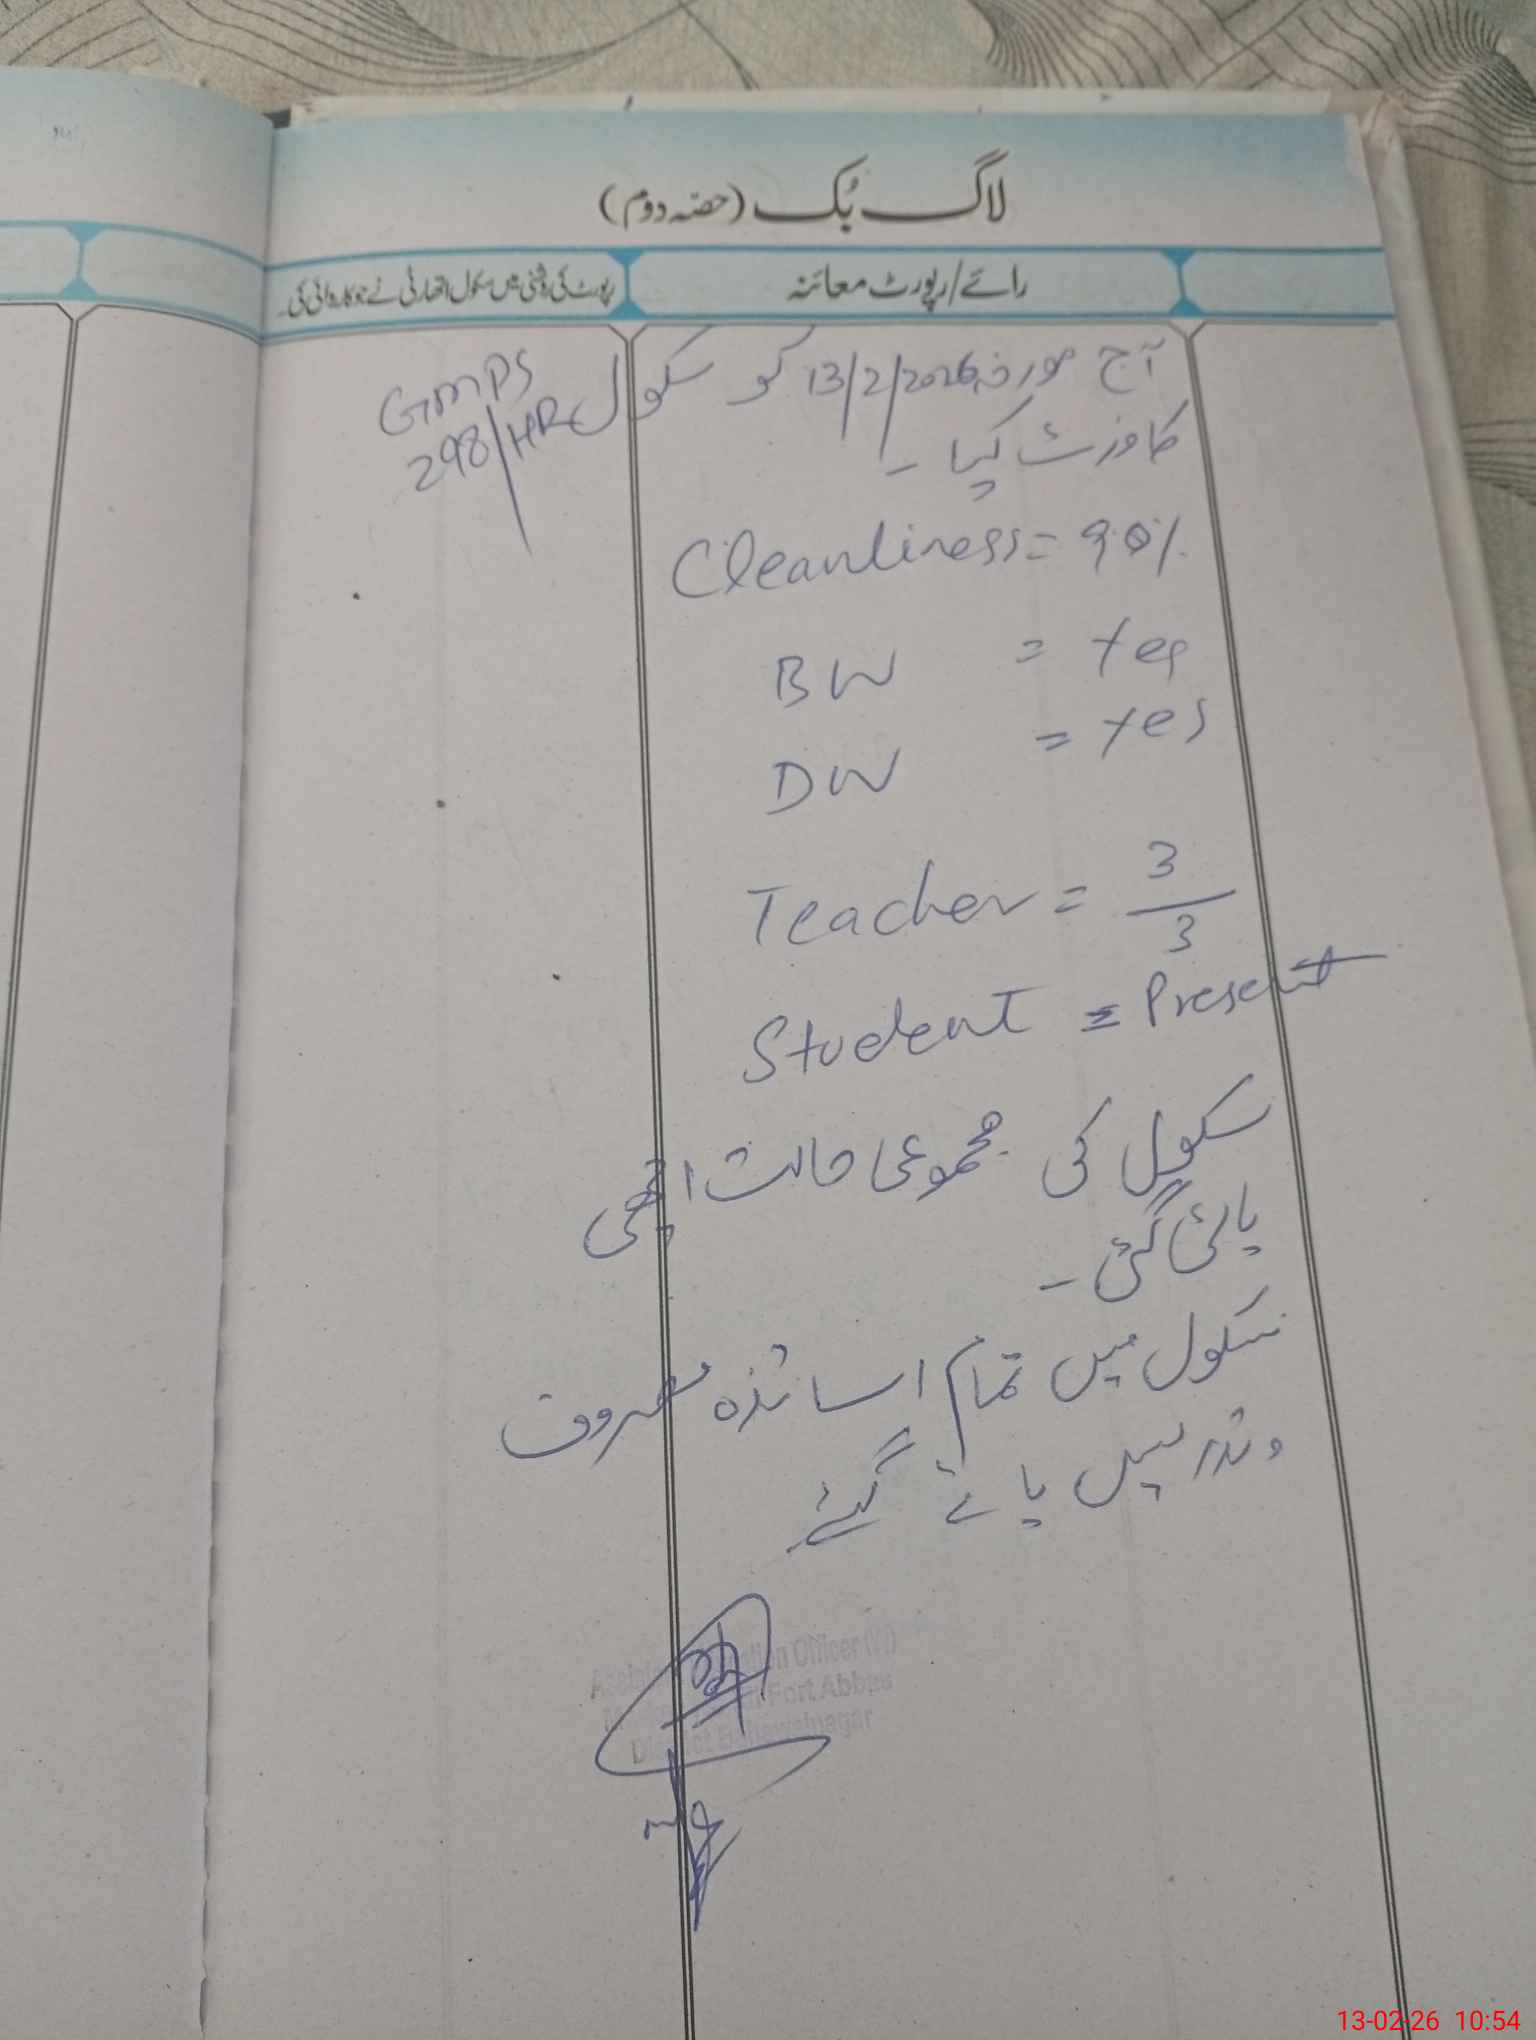 لاگ بُک (حصّہ دوم)
رائے/رپورٹ معائنہ
رپورٹ کی روشنی میں سکول اتھارٹی نے جو کاروائی کی۔
آج مورخہ 13/2/2026 کو سکول GMPS
298/HR
کا وزٹ کیا ۔
Cleanliness = 90%
BW = Yes
DW = Yes
Teacher = 3/3
Student = Present
سکول کی مجموعی حالت اچھی
پائی گئی ۔
سکول میں تمام اساتذہ مصروف
و تدریس پائے گئے
Education Officer
Fort Abbas
District Bahawalnagar
13-02-26 10:54